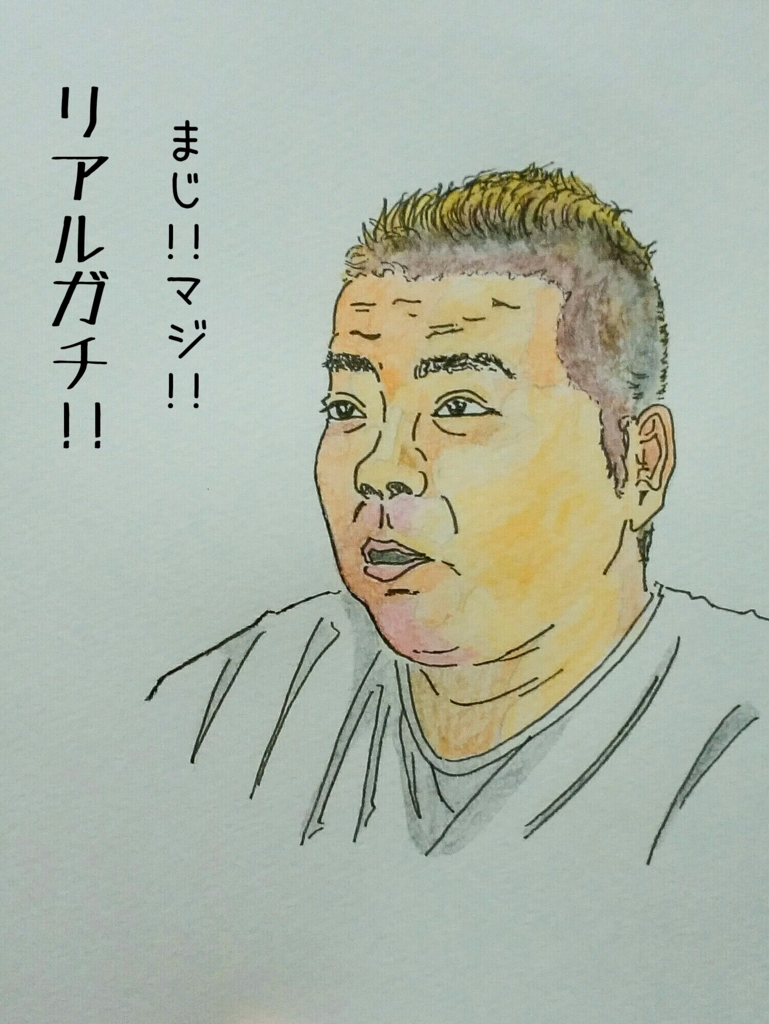 まじ!!マジ!!
リアルガチ!!